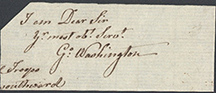 I am Dear Sir
Yr. most obt. Servt.
Go: Washington
Troops